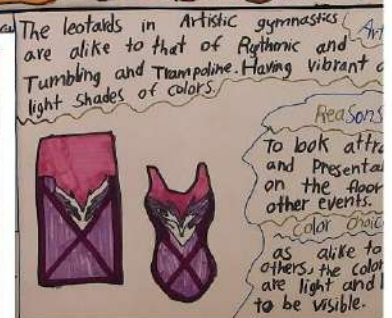 The leotards in Artistic gymnastics
are alike to that of Rythmic and
Tumbling and Trampoline. Having vibrant
light shades of colors.
Reasons
To look
and
on the floor
other events.
color
as alike to
others, the color
are light and
to be visible.